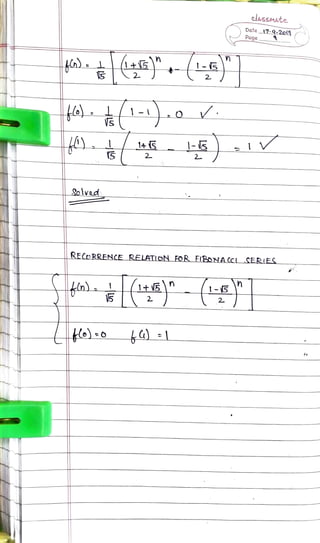 classmate
Date 17-9-2019
Page 9
f(n) = 1/√5 [ ((1+√5)/2)^n - ((1-√5)/2)^n ]
f(0) = 1/√5 (1-1) = 0 ✓.
f(1) = 1/√5 ( (1+√5)/2 - (1-√5)/2 ) = 1 ✓
Solved
RECORRENCE RELATION FOR FIBONACCI SERIES
f(n) = 1/√5 [ ((1+√5)/2)^n - ((1-√5)/2)^n ]
f(0) = 0 f(1) = 1